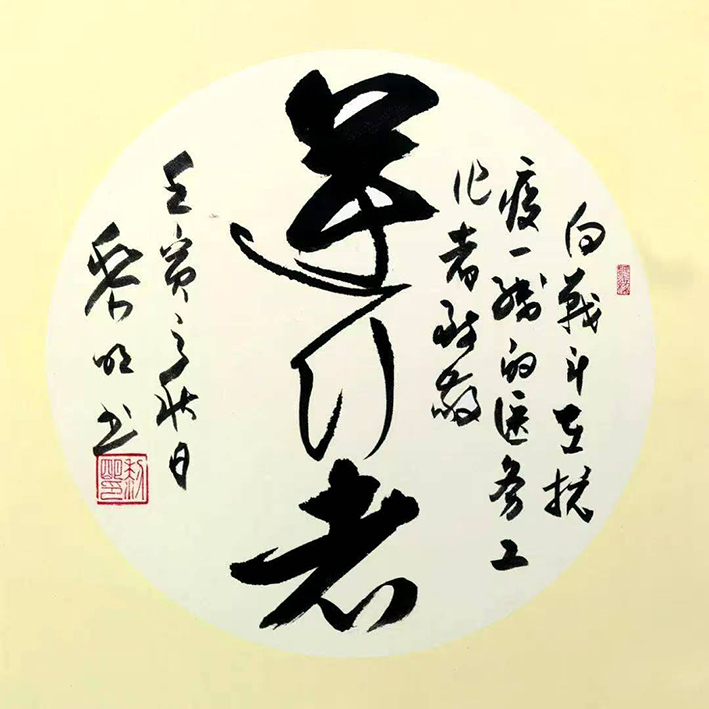 向战斗在抗
疫一线的医务工
作者致敬
逆行者
壬寅之秋日
黎明书